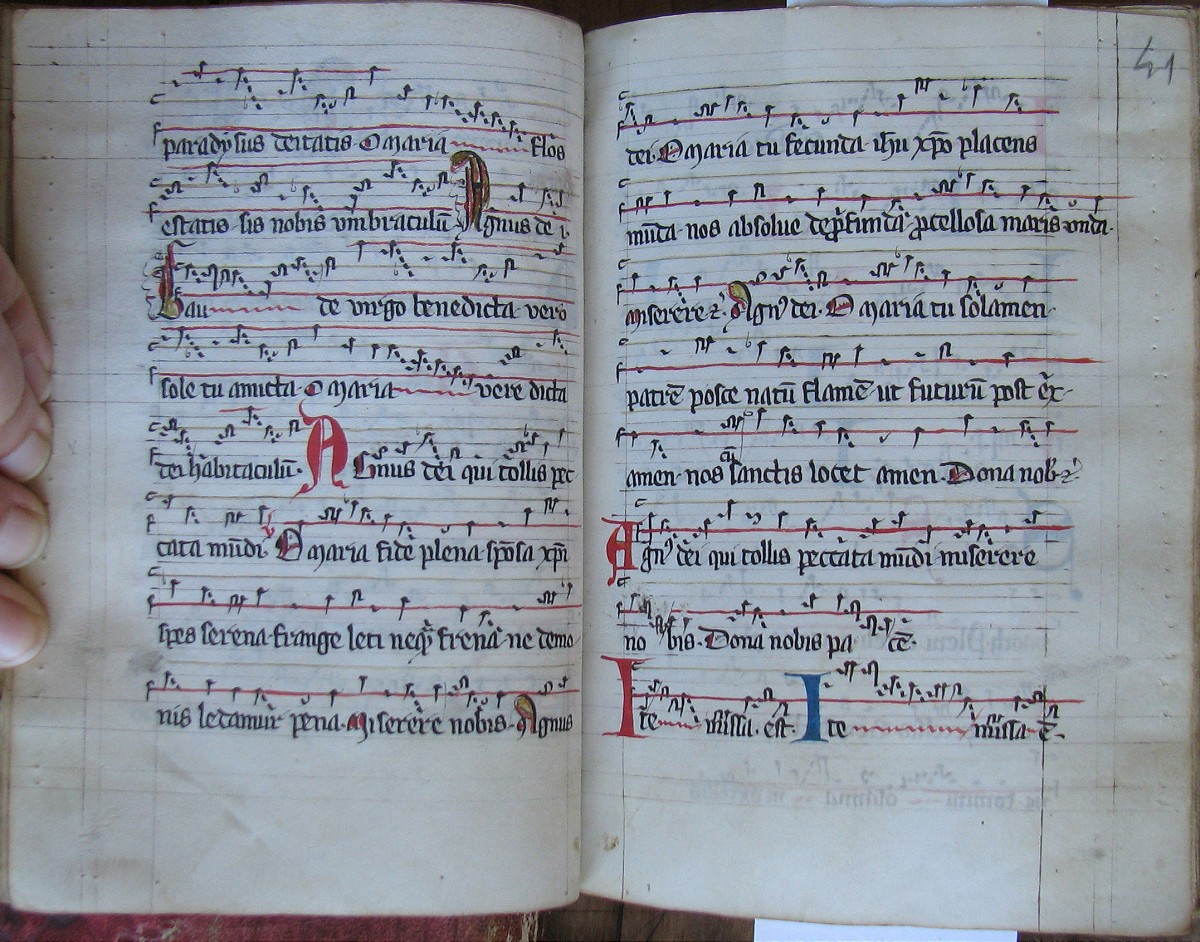 paradysus deitatis · O maria flos
estatis · sis nobis vmbraculū Agnus de i ·
Gau de virgo benedicta vero
sole tu amicta · O maria vere dicta
dei habitaculū · Agnus dei qui tollis pec
cata mūdi · O maria fide plena · spōsa xp̄i
spes serena · frange leti neq frena · ne demo
nis ledamur pena · Miserere nobis · Agnus
41
dei · O maria tu fecunda · ihu xp̄o placens
mūda · nos absolue de p̄funda · pcellosa maris vnda ·
miserere · Agn9 dei · O maria tu solamen ·
patrē posce natū flamē · ut futurū post ex ·
amen · nos cū sanctis locet amen · Dona nob
Agn9 dei qui tollis peccata mūdi · miserere
no bis · Dona nobis pa cē ·
Ite missa · est · Ite missa ē ·